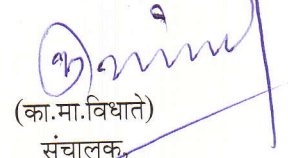 (का.मा.विधाते)
संचालक